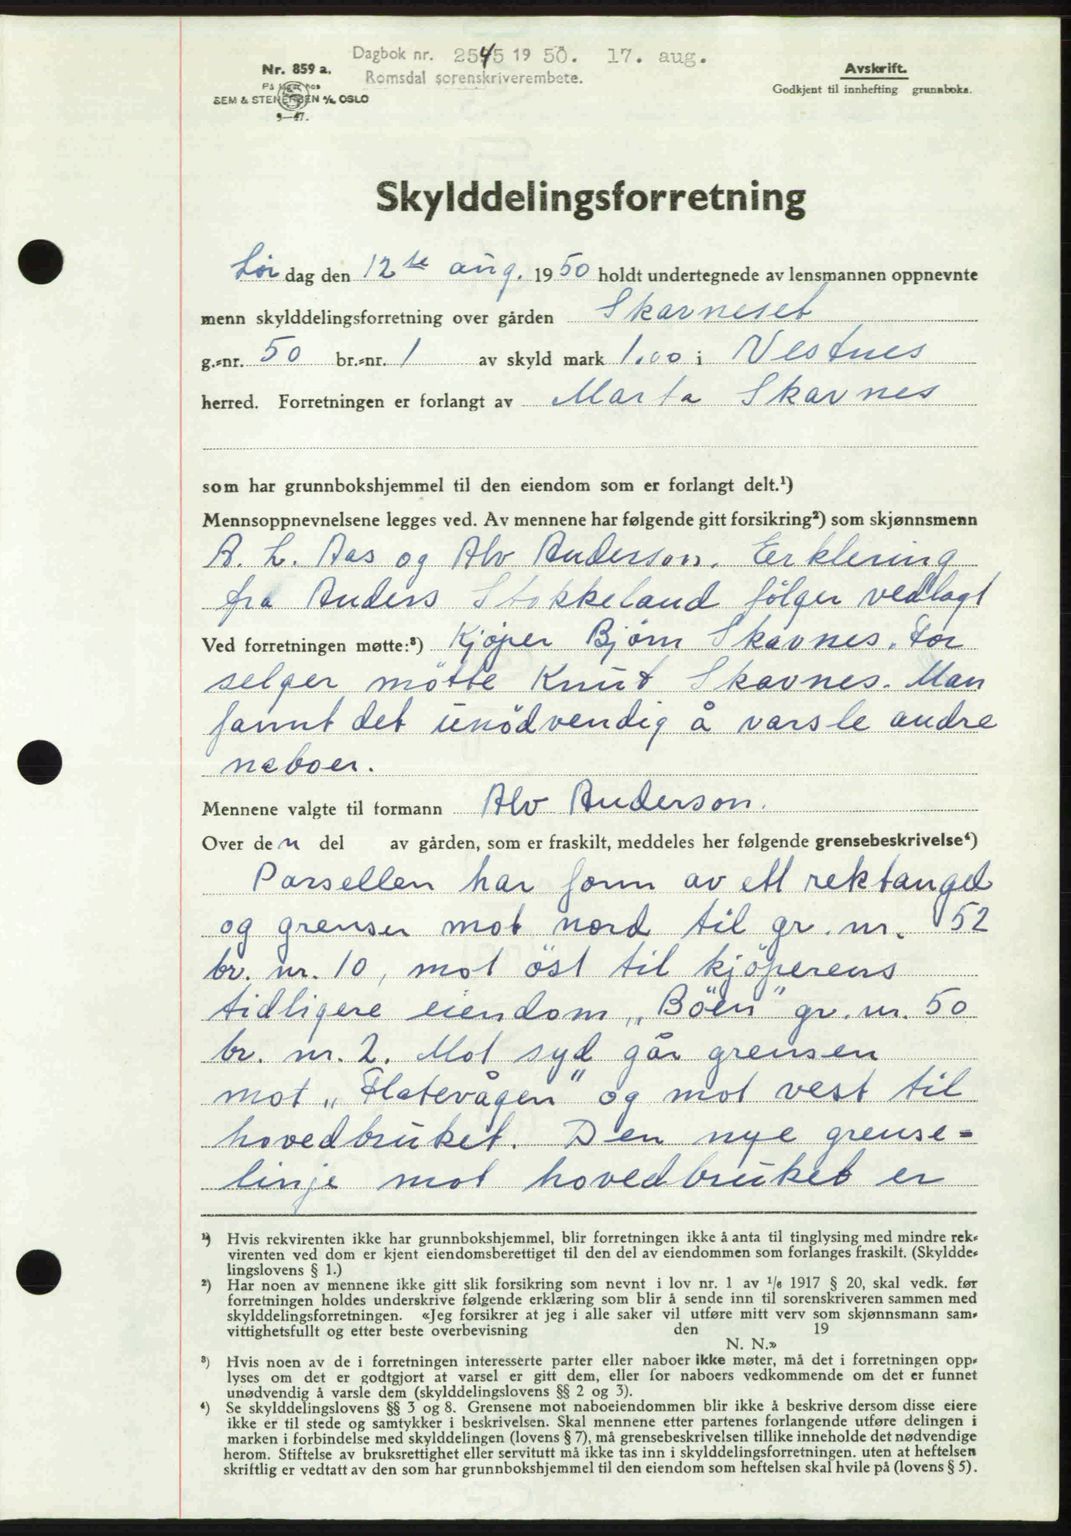 Dagbok nr. 2545 1950. 17. aug.
Romsdal sorenskriverembete.
Nr. 859 a.
På lager hos
SEM & STENERSEN A/S, OSLO
9—47.
Avskrift.
Godkjent til innhefting grunnboka.
Skylddelingsforretning
Lørdag den 12te aug. 1950 holdt undertegnede av lensmannen oppnevnte
menn skylddelingsforretning over gården Skavneset
g.-nr. 50 br.-nr. 1 av skyld mark 1.00 i Vestnes
herred. Forretningen er forlangt av Marta Skavnes
som har grunnbokshjemmel til den eiendom som er forlangt delt.¹)
Mennsoppnevnelsene legges ved. Av mennene har følgende gitt forsikring²) som skjønnsmenn
A. L. Aas og Alv Anderson. Erklering
fra Anders Stokkeland følger vedlagt
Ved forretningen møtte:³) Kjøper Bjørn Skavnes. For
selger møtte Knut Skavnes. Man
fannt det unødvendig å varsle andre
naboer.
Mennene valgte til formann Alv Anderson.
Over den del av gården, som er fraskilt, meddeles her følgende grensebeskrivelse⁴)
Parsellen har form av ett rektangel
og grenser mot nord til gr. nr. 52
br. nr. 10, mot öst til kjöperens
tidligere eiendom „Böen" gr. nr. 50
br. nr. 2. Mot syd går grensen
mot „Flatevågen" og mot vest til
hovedbruket. Den nye grense-
linje mot hovedbruket er
¹) Hvis rekvirenten ikke har grunnbokshjemmel, blir forretningen ikke å anta til tinglysing med mindre rek-
virenten ved dom er kjent eiendomsberettiget til den del av eiendommen som forlanges fraskilt. (Skyldde-
lingslovens § 1.)
²) Har noen av mennene ikke gitt slik forsikring som nevnt i lov nr. 1 av ¹/₆ 1917 § 20, skal vedk. før
forretningen holdes underskrive følgende erklæring som blir å sende inn til sorenskriveren sammen med
skylddelingsforretningen. «Jeg forsikrer at jeg i alle saker vil utføre mitt verv som skjønnsmann sam-
vittighetsfullt og etter beste overbevisning den 19
N. N.»
³) Hvis noen av de i forretningen interesserte parter eller naboer ikke møter, må det i forretningen opp-
lyses om det er godtgjort at varsel er gitt dem, eller for naboers vedkommende om det er funnet
unødvendig å varsle dem (skylddelingslovens §§ 2 og 3).
⁴) Se skylddelingslovens §§ 3 og 8. Grensene mot naboeiendommen blir ikke å beskrive dersom disse eiere
ikke er til stede og samtykker i beskrivelsen. Skal mennene etter partenes forlangende utføre delingen i
marken i forbindelse med skylddelingen (lovens § 7), må grensebeskrivelsen tillike inneholde det nødvendige
herom. Stiftelse av bruksrettighet eller servitutt må ikke tas inn i skylddelingsforretningen. uten at heftelsen
skriftlig er vedtatt av den som har grunnbokshjemmel til den eiendom som heftelsen skal hvile på (lovens § 5).